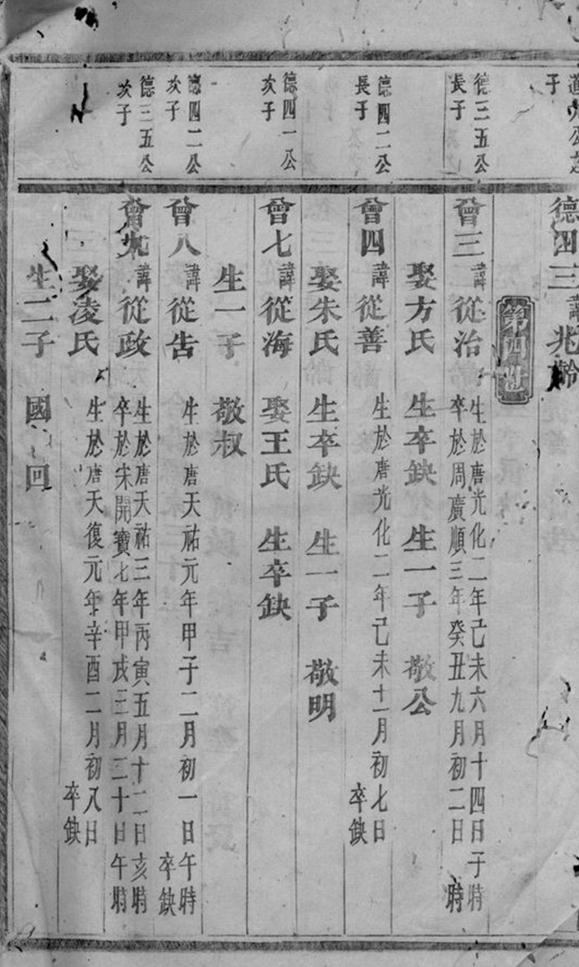 子
德四三 諱兆齡
第四世
德三五公
長子
曾三 諱從治 生於唐光化二年己未六月十四日子時
卒於周廣順三年癸丑九月初二日 時
娶方氏 生卒缺 生一子 敬公
德四二公
長子
曾四 諱從善 生於唐光化二年己未十一月初七日
卒缺
娶朱氏 生卒缺 生一子 敬明
德四一公
次子
曾七 諱從海 娶王氏 生卒缺
生一子 敬叔
德四二公
次子
曾八 諱從吿 生於唐天祐元年甲子二月初一日午時
卒缺
德三五公
次子
曾九 諱從政 生於唐天祐三年丙寅五月十二日亥時
卒於宋開寶七年甲戌三月三十日午時
娶凌氏 生於唐天復元年辛酉二月初八日
卒缺
生二子 國 回